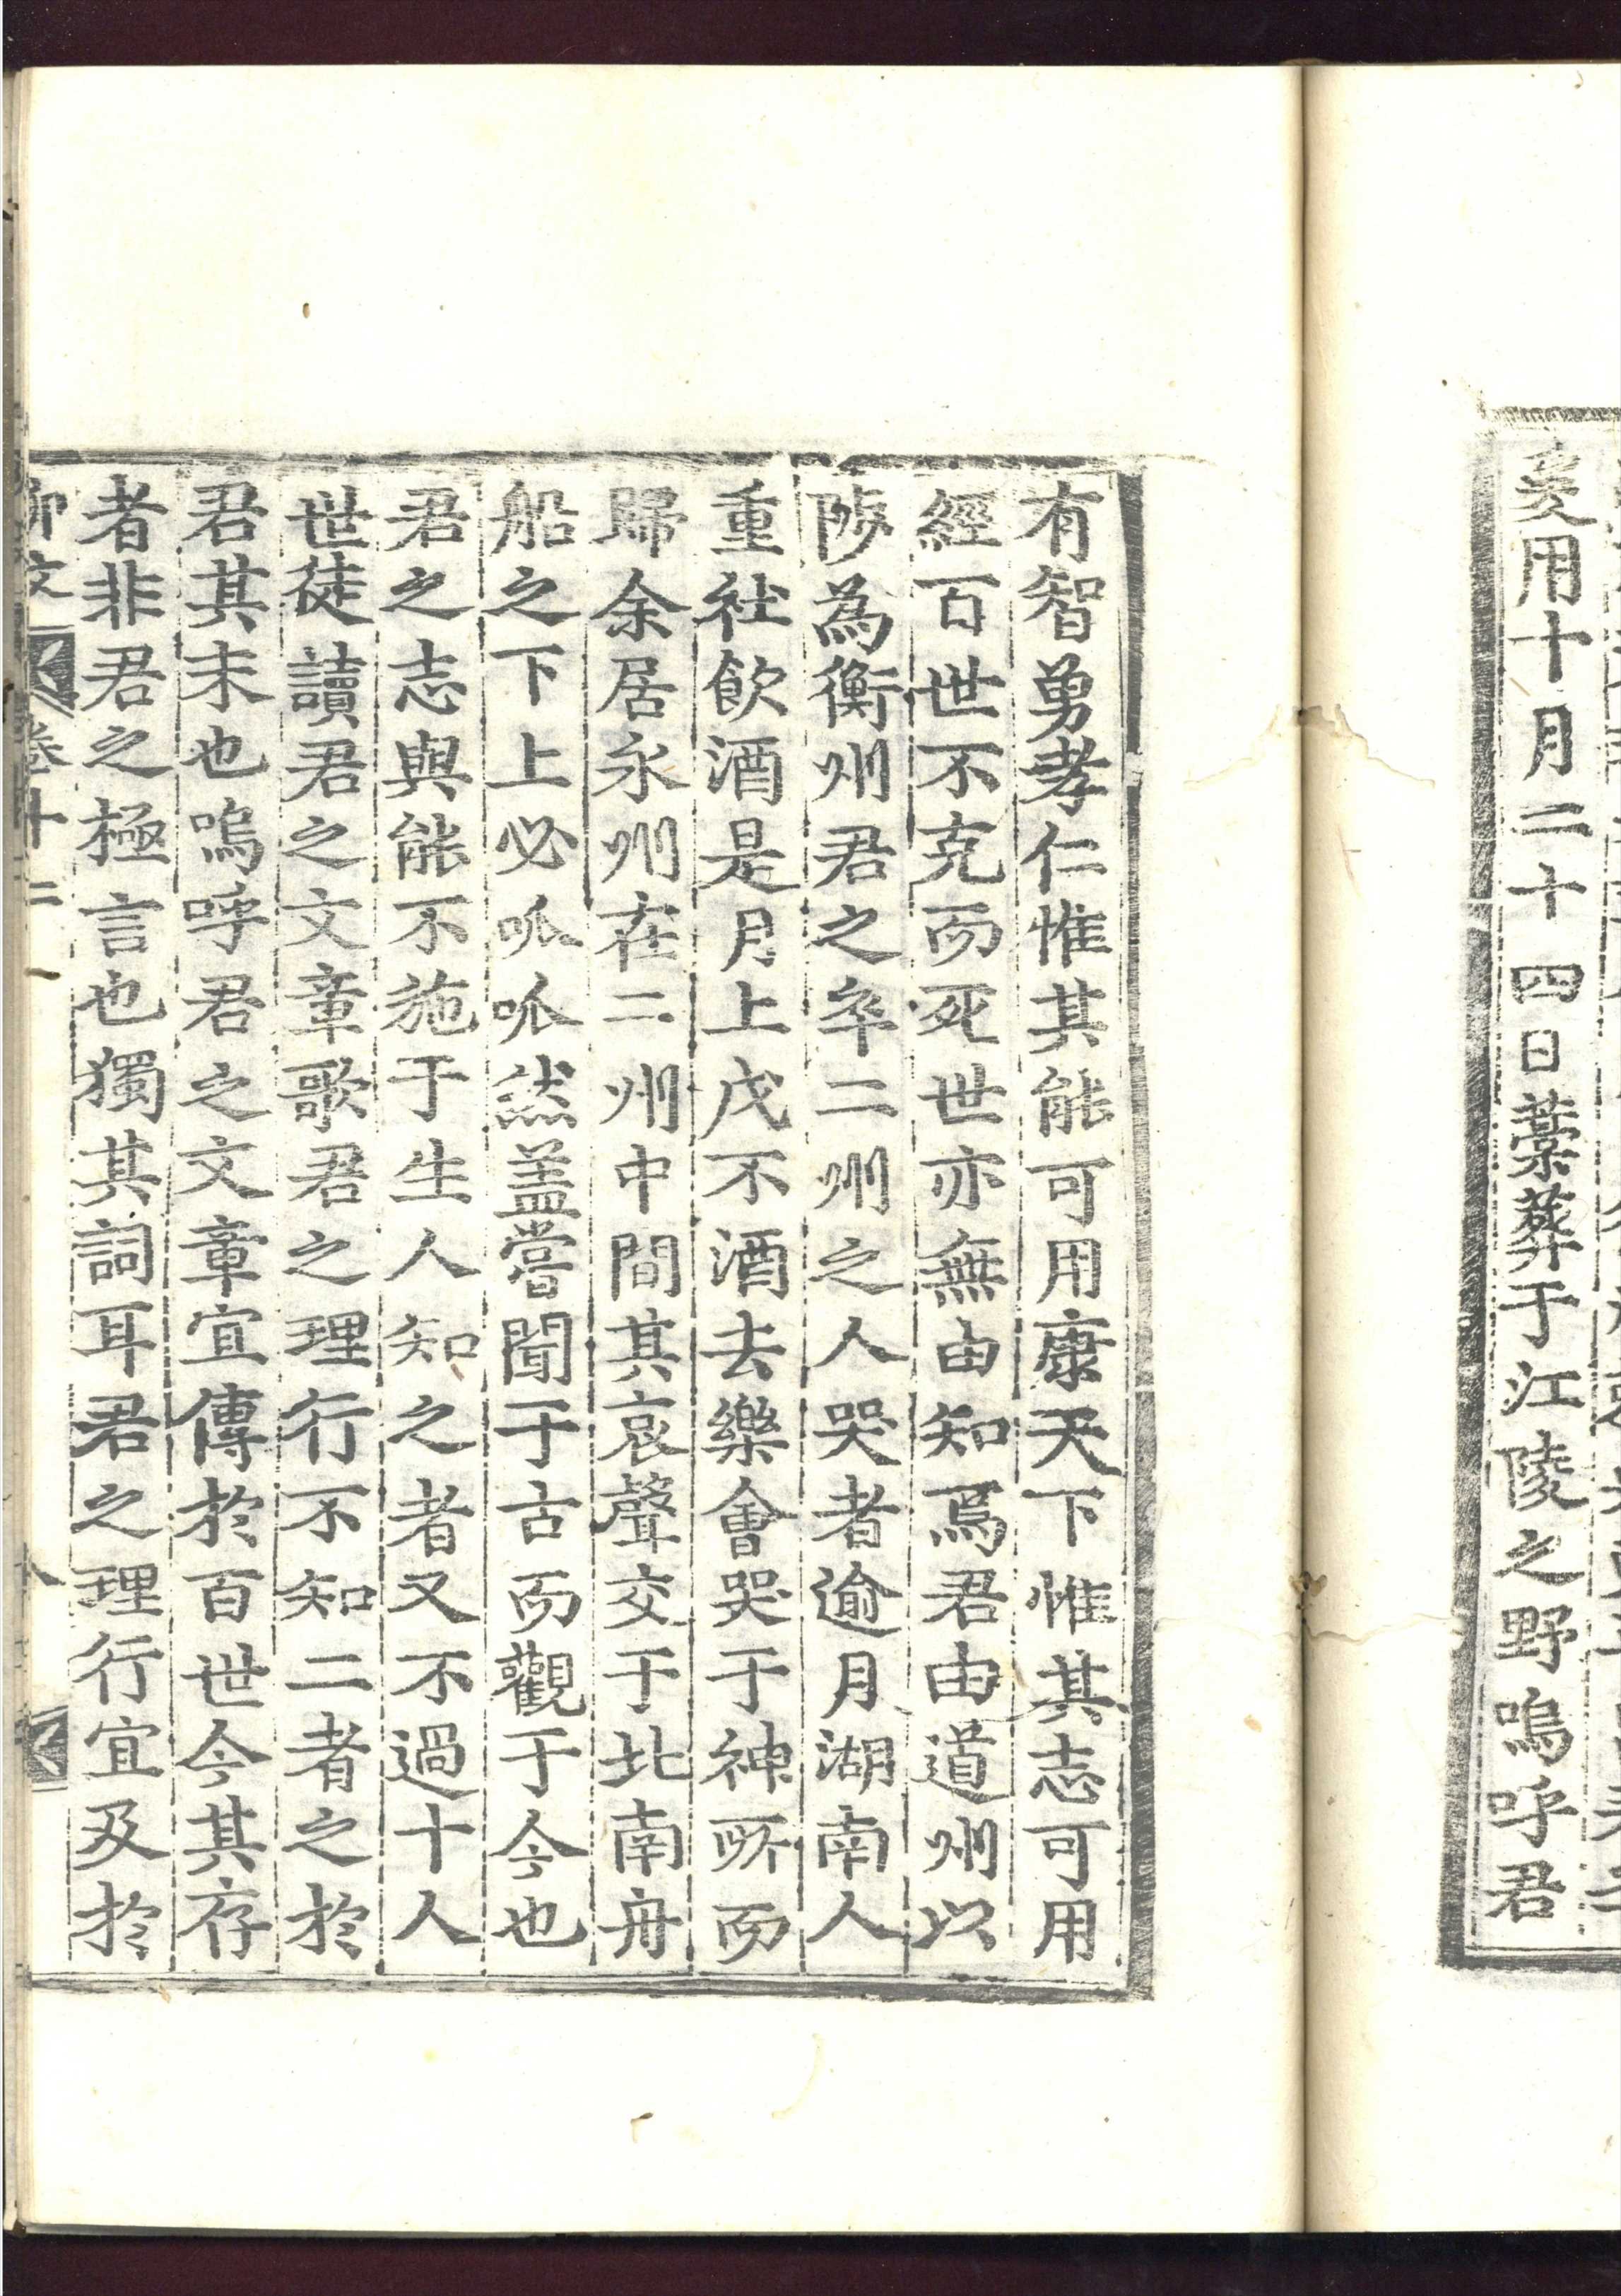 爰用十月二十四日藁葬于江陵之野嗚呼君
有智勇孝仁惟其能可用康天下惟其志可用
經百世不克而死世亦無由知焉君由道州以
陟為衡州君之卒二州之人哭者逾月湖南人
重社飲酒是月上戊不酒去樂會哭于神所而
歸余居永州在二州中間其哀聲交于北南舟
船之下上必呱呱然盖嘗聞于古而觀于今也
君之志與能不施于生人知之者又不過十人
世徒讀君之文章歌君之理行不知二者之於
君其末也嗚呼君之文章宜傳於百世今其存
者非君之極言也獨其詞耳君之理行宜及於
柳文 卷十二